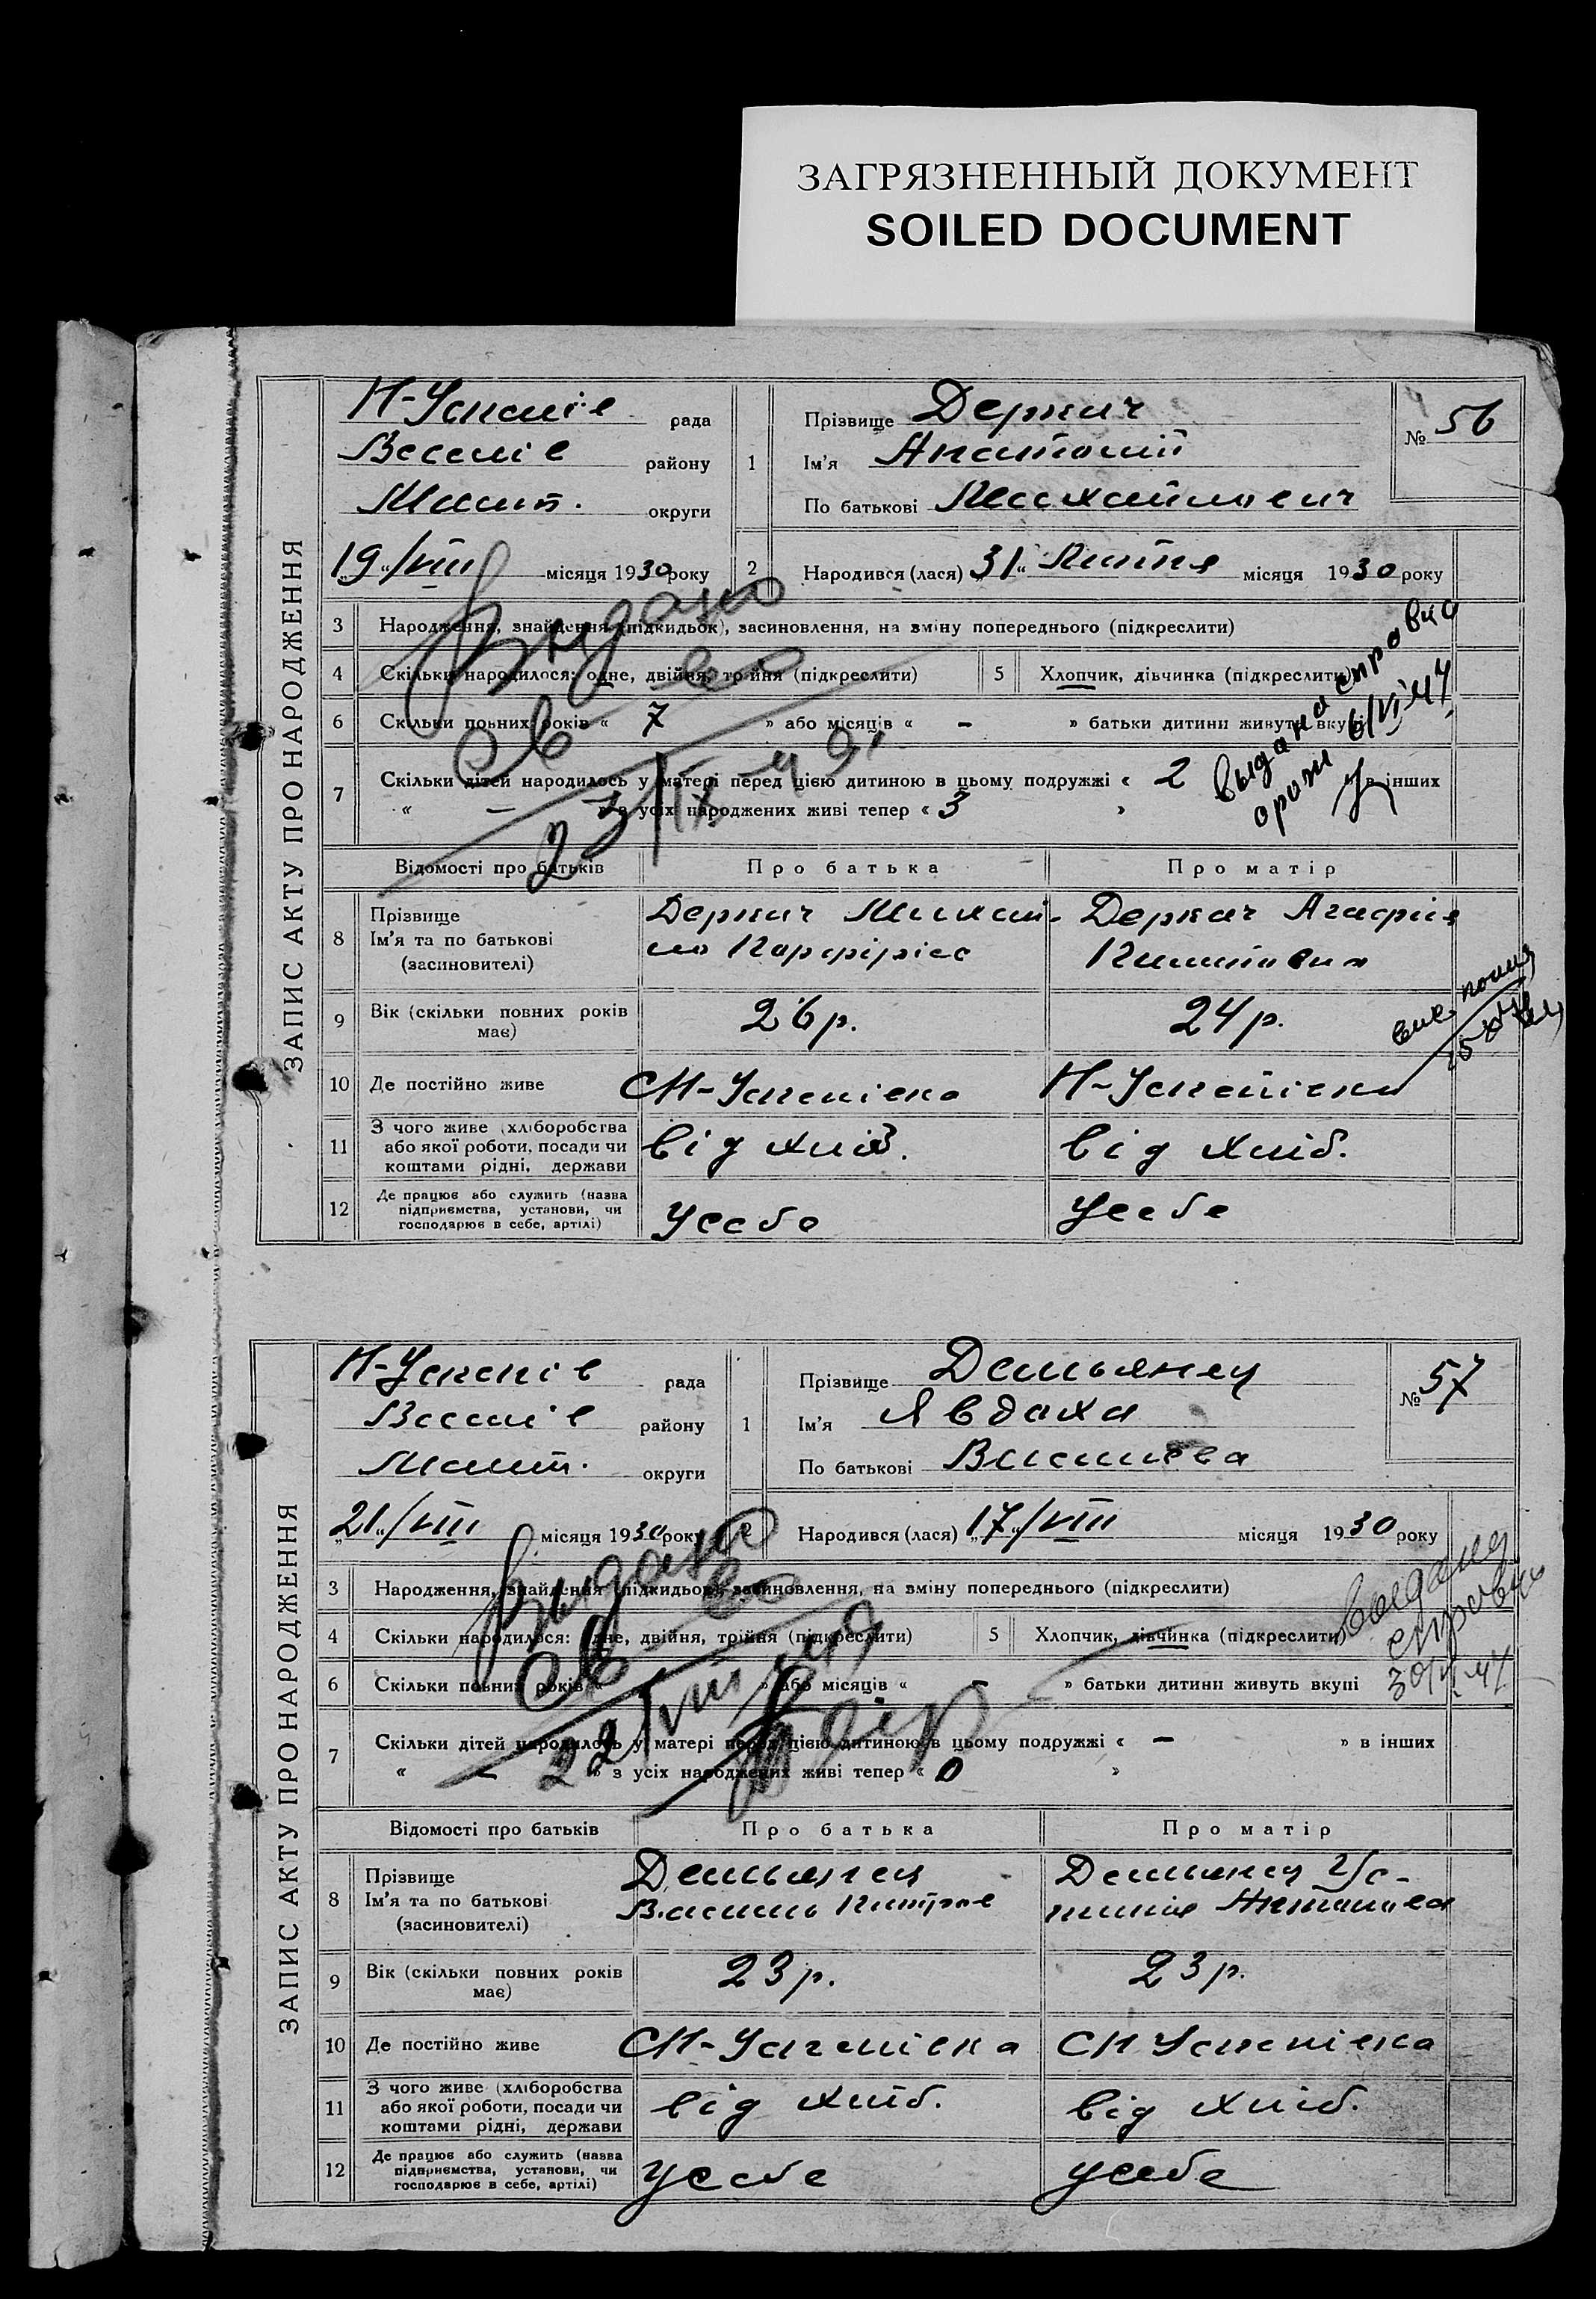 ЗАГРЯЗНЕННЫЙ ДОКУМЕНТ
SOILED DOCUMENT
ЗАПИС АКТУ ПРО НАРОДЖЕННЯ
Н-Успенів рада
Веселів району
Меліт. округи
"19"/VIII місяця 1930 року
1 Прізвище Деркач
Ім'я Анатолий
По батькові Михайлович
№ 56
2 Народився (лася) 31" Липня місяця 1930 року
3 Народження, знайдення (підкидьок), засиновлення, на зміну попереднього (підкреслити)
4 Скільки народилося: одне, двійня, трійня (підкреслити)
5 Хлопчик, дівчинка (підкреслити)
6 Скільки повних років « 7 » або місяців « – » батьки дитини живуть вкупі
7 Скільки дітей народилось у матері перед цією дитиною в цьому подружжі « 2 » в інших
« – » з усіх народжених живі тепер « 3 »
Выдано
св во
23/IX-49
выдана справка
6/VI-44
Відомості про батьків
Про батька
Про матір
8 Прізвище
Ім'я та по батькові
(засиновителі)
Деркач Михай-
ло Порфірієв
Деркач Агафія
Пилипівна
9 Вік (скільки повних років
має)
26 р.
24 р.
10 Де постійно живе
СН-Успенівка
Н-Успенівка
11 З чого живе (хліборобства
або якої роботи, посади чи
коштами рідні, держави
від хліб.
від хліб.
12 Де працює або служить (назва
підприємства, установи, чи
господарює в себе, артілі)
у себе
у себе
ЗАПИС АКТУ ПРО НАРОДЖЕННЯ
Н-Успенів рада
Веселів району
Меліт. округи
"21"/VIII місяця 1930 року
1 Прізвище Демьянец
Ім'я Явдоха
По батькові Василева
№ 57
2 Народився (лася) "17"/VIII місяця 1930 року
3 Народження, знайдення (підкидьок), засиновлення, на зміну попереднього (підкреслити)
4 Скільки народилося: одне, двійня, трійня (підкреслити)
5 Хлопчик, дівчинка (підкреслити)
6 Скільки повних років » або місяців « – » батьки дитини живуть вкупі
7 Скільки дітей народилось у матері перед цією дитиною в цьому подружжі « – » в інших
« – » з усіх народжених живі тепер « 0 »
Выдано
св во
22/VIII
справка
Відомості про батьків
Про батька
Про матір
8 Прізвище
Ім'я та по батькові
(засиновителі)
Демьянец
Василь
Демьянец
9 Вік (скільки повних років
має)
23 р.
23 р.
10 Де постійно живе
СН-Успенівка
СН Успенівка
11 З чого живе (хліборобства
або якої роботи, посади чи
коштами рідні, держави
від хліб.
від хліб.
12 Де працює або служить (назва
підприємства, установи, чи
господарює в себе, артілі)
у себе
у себе